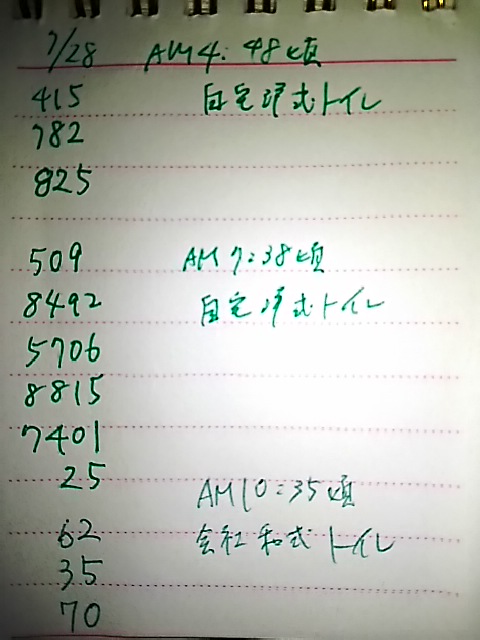 7/28 AM4:48頃
415 自宅洋式トイレ
782
825
509 AM7:38頃
8492 自宅洋式トイレ
5706
8815
7401
25
AM10:35頃
62 会社和式トイレ
35
70